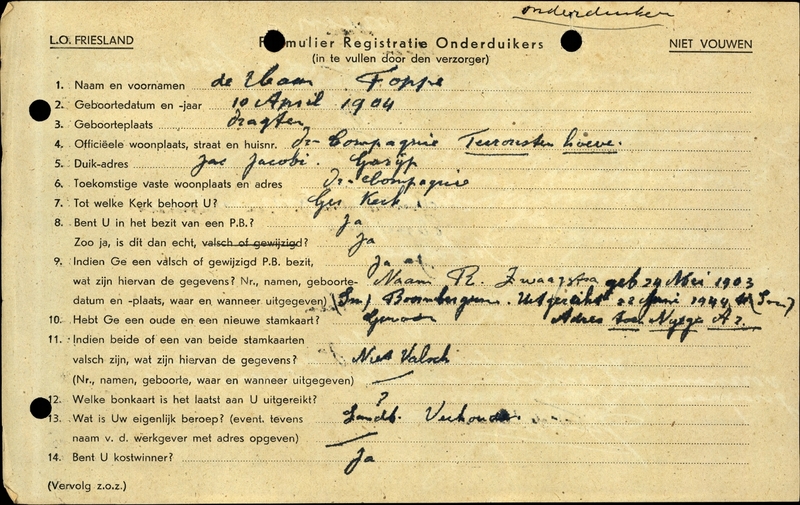 onderduiker
L.O. FRIESLAND
Formulier Registratie Onderduikers
NIET VOUWEN
(in te vullen door den verzorger)
1. Naam en voornamen de Haan Foppe
2. Geboortedatum en -jaar 10 April 1904
3. Geboorteplaats Dragten
4. Officiëele woonplaats, straat en huisnr. Dr- Compagnie Terroristen hoeve.
5. Duik-adres Jac Jacobi. Garijp
6. Toekomstige vaste woonplaats en adres Dr- Compagnie
7. Tot welke Kerk behoort U? Ger Kerk.
8. Bent U in het bezit van een P.B.? Ja
Zoo ja, is dit dan echt, valsch of gewijzigd? Ja
9. Indien Ge een valsch of gewijzigd P.B. bezit, Ja
wat zijn hiervan de gegevens? Nr., namen, geboorte- Naam R. Zwaagstra geb 24 Mei 1903
datum en -plaats, waar en wanneer uitgegeven) (Sm) Boornbergum. Uitgereikt 22 Juni 1944
10. Hebt Ge een oude en een nieuwe stamkaart? Adres Nijega A 2.
11. Indien beide of een van beide stamkaarten
valsch zijn, wat zijn hiervan de gegevens? Niet Valsch
(Nr., namen, geboorte, waar en wanneer uitgegeven)
12. Welke bonkaart is het laatst aan U uitgereikt? ?
13. Wat is Uw eigenlijk beroep? (event. tevens Landb. Veehouder
naam v. d. werkgever met adres opgeven)
14. Bent U kostwinner? Ja
(Vervolg z.o.z.)